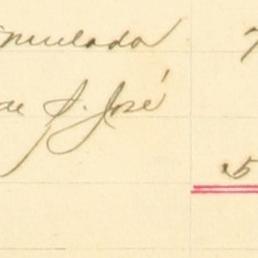 mulada 7
de S. José
5